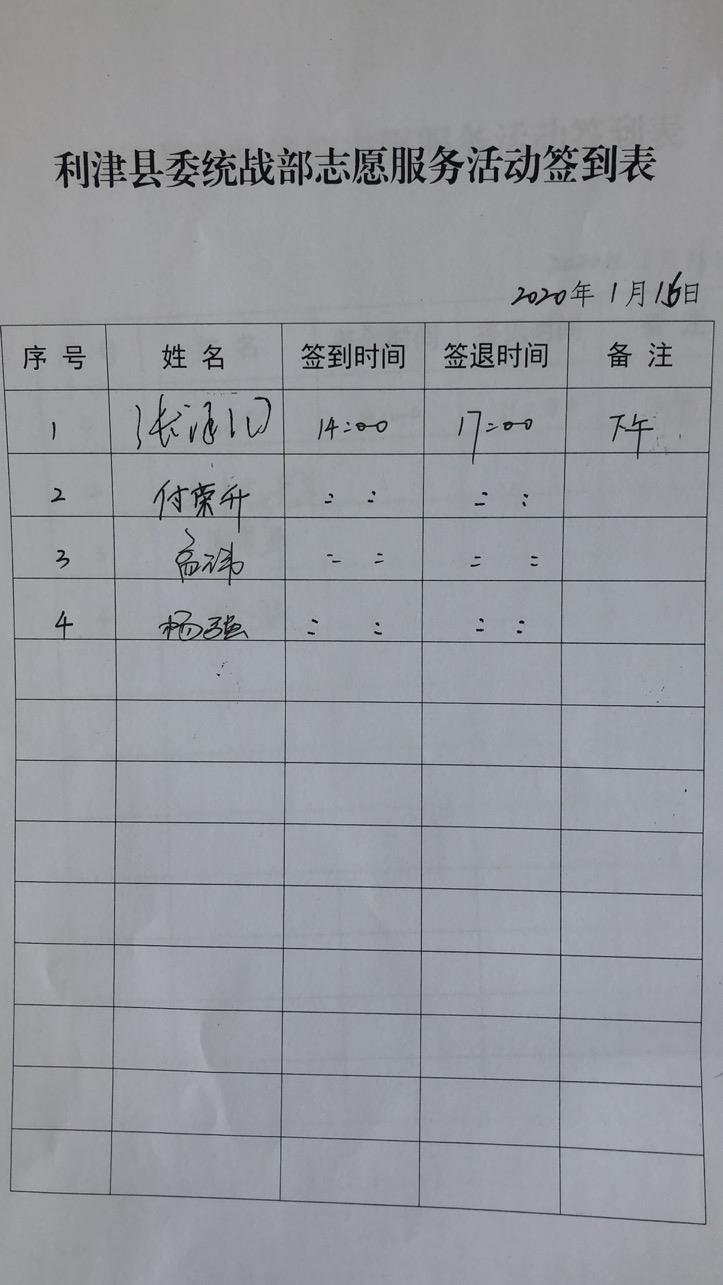 利津县委统战部志愿服务活动签到表
2020年1月16日
序号 姓名 签到时间 签退时间 备注
1 张 14:00 17:00 下午
2 付荣升 :: ::
3 高祎 :: ::
4 杨强 :: ::